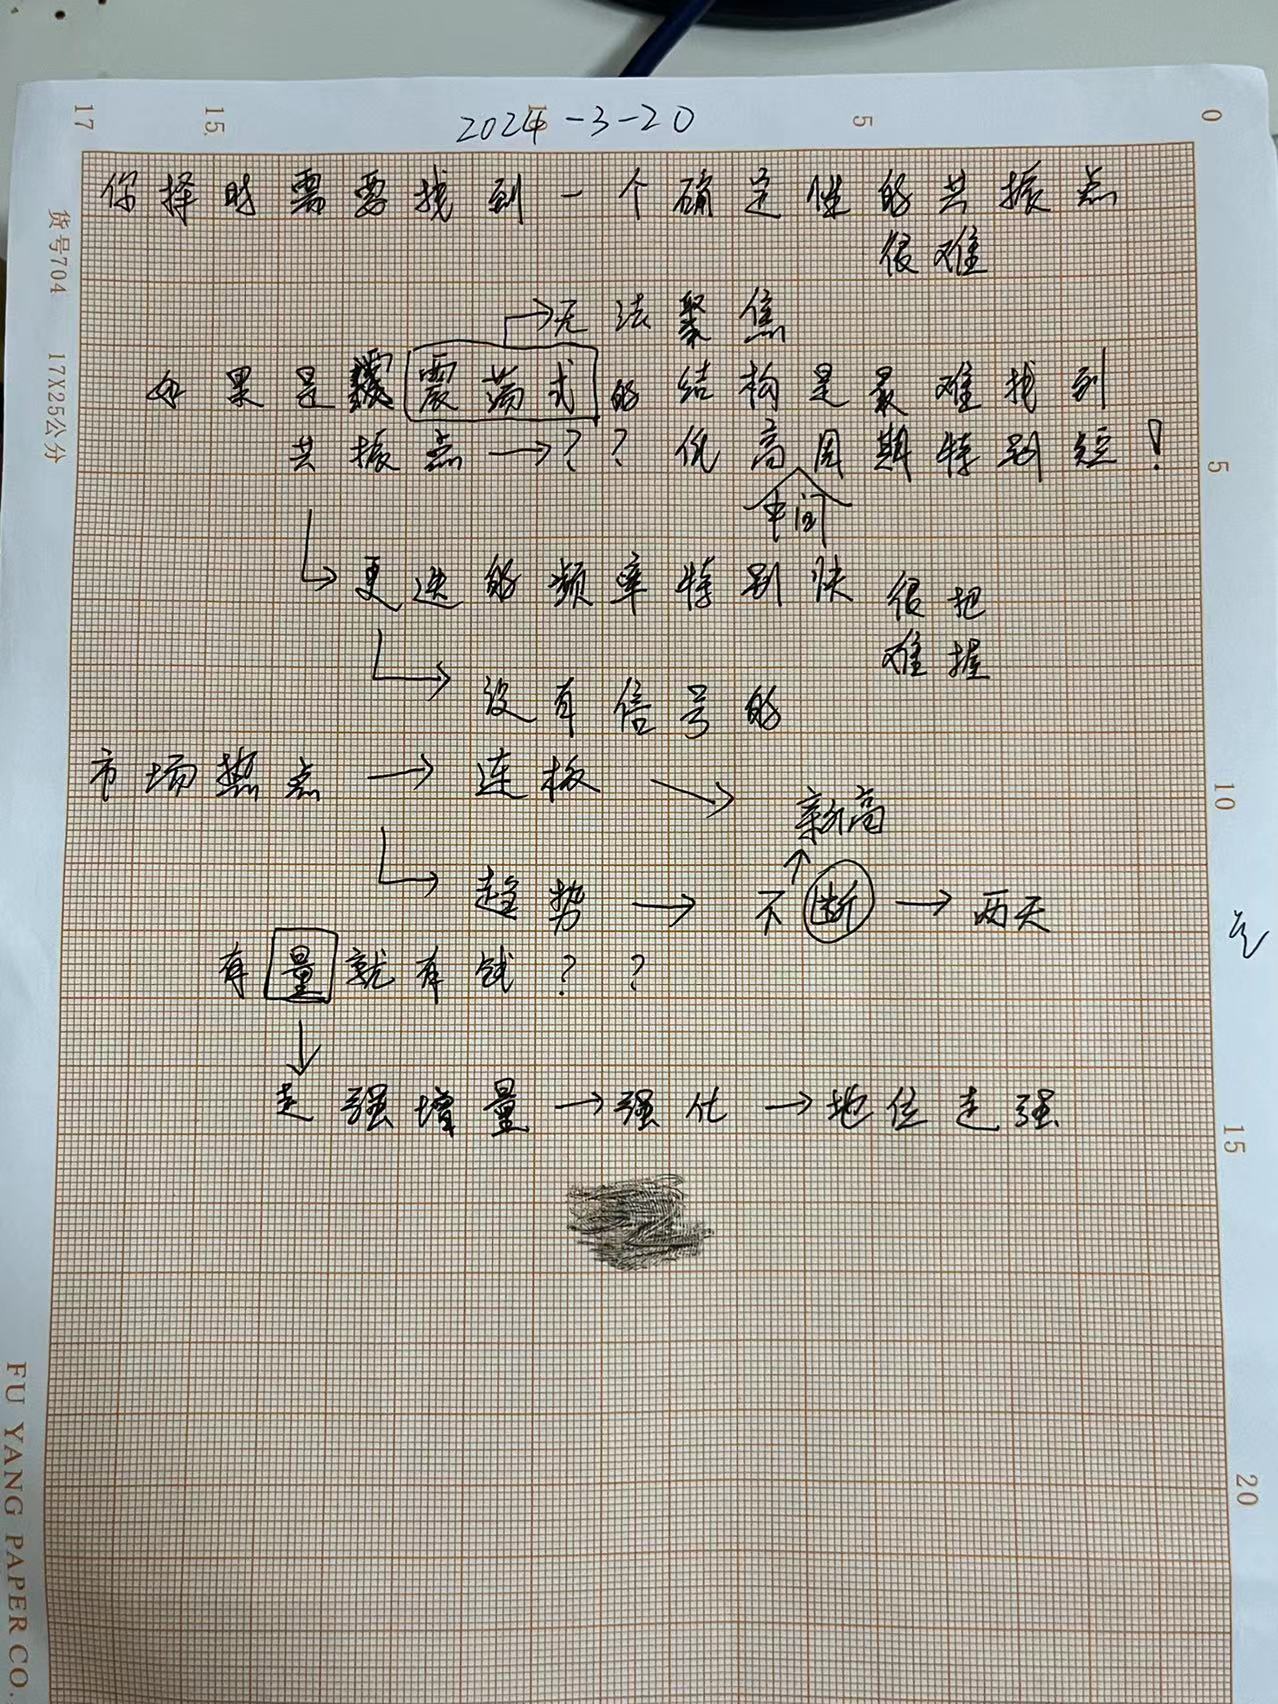 17 15 10 5 0
2024-3-20
你择时需要找到一个确定性的共振点
很难
→无法聚焦
如果是震荡式的结构是最难找到
共振点→？？低高周期特别短！
中间
→更迭的频率特别快 很难把握
→没有信号的
市场热点→连板→
新高
→趋势→不断→两天
有量就有钱？？
↓
走强增量→强化→地位走强
货号704 17X25公分
5
10
15
20
FU YANG PAPER CO.